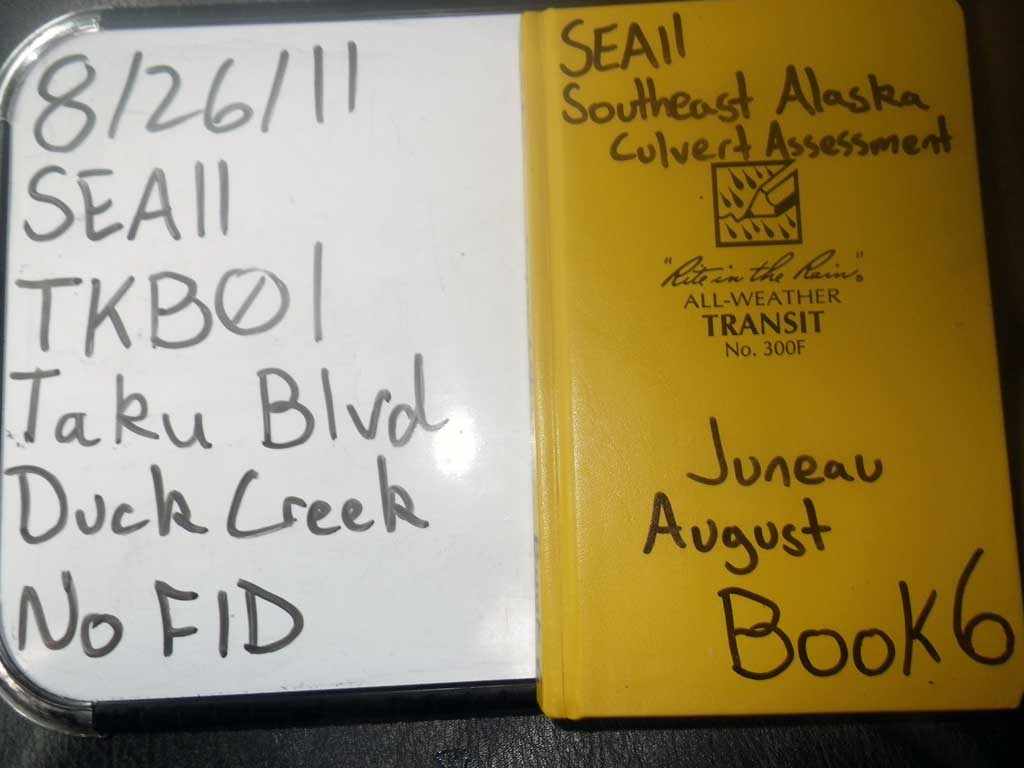 8/26/11
SEA11
TKB01
Taku Blvd
Duck Creek
No FID
SEA11
Southeast Alaska
Culvert Assessment
"Rite in the Rain"®
ALL-WEATHER
TRANSIT
No. 300F
Juneau
August
Book 6